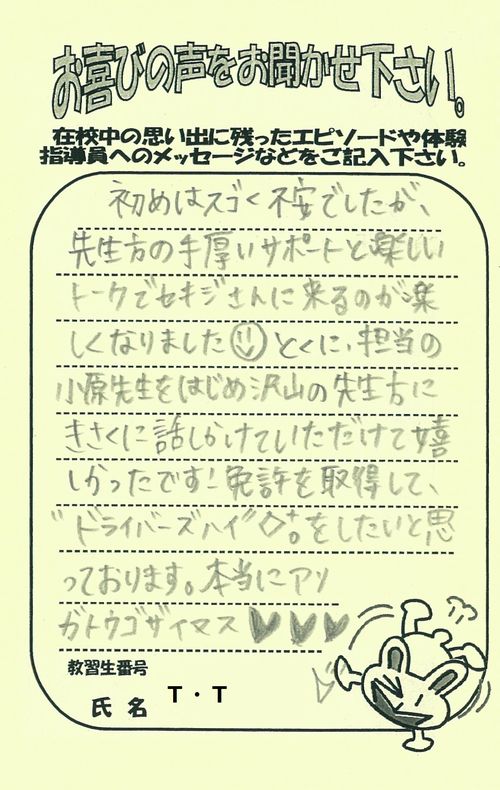 お喜びの声をお聞かせ下さい。
在校中の思い出に残ったエピソードや体験
指導員へのメッセージなどをご記入下さい。
初めはスゴく不安でしたが、
先生方の手厚いサポートと楽しい
トークでセキジさんに来るのが楽
しくなりました とくに、担当の
小原先生をはじめ沢山の先生方に
きさくに話しかけていただけて嬉
しかったです!免許を取得して、
"ドライバーズハイ"◇。をしたいと思
っております。本当にアリ
ガトウゴザイマス♥♥♥
教習生番号
氏名 T・T